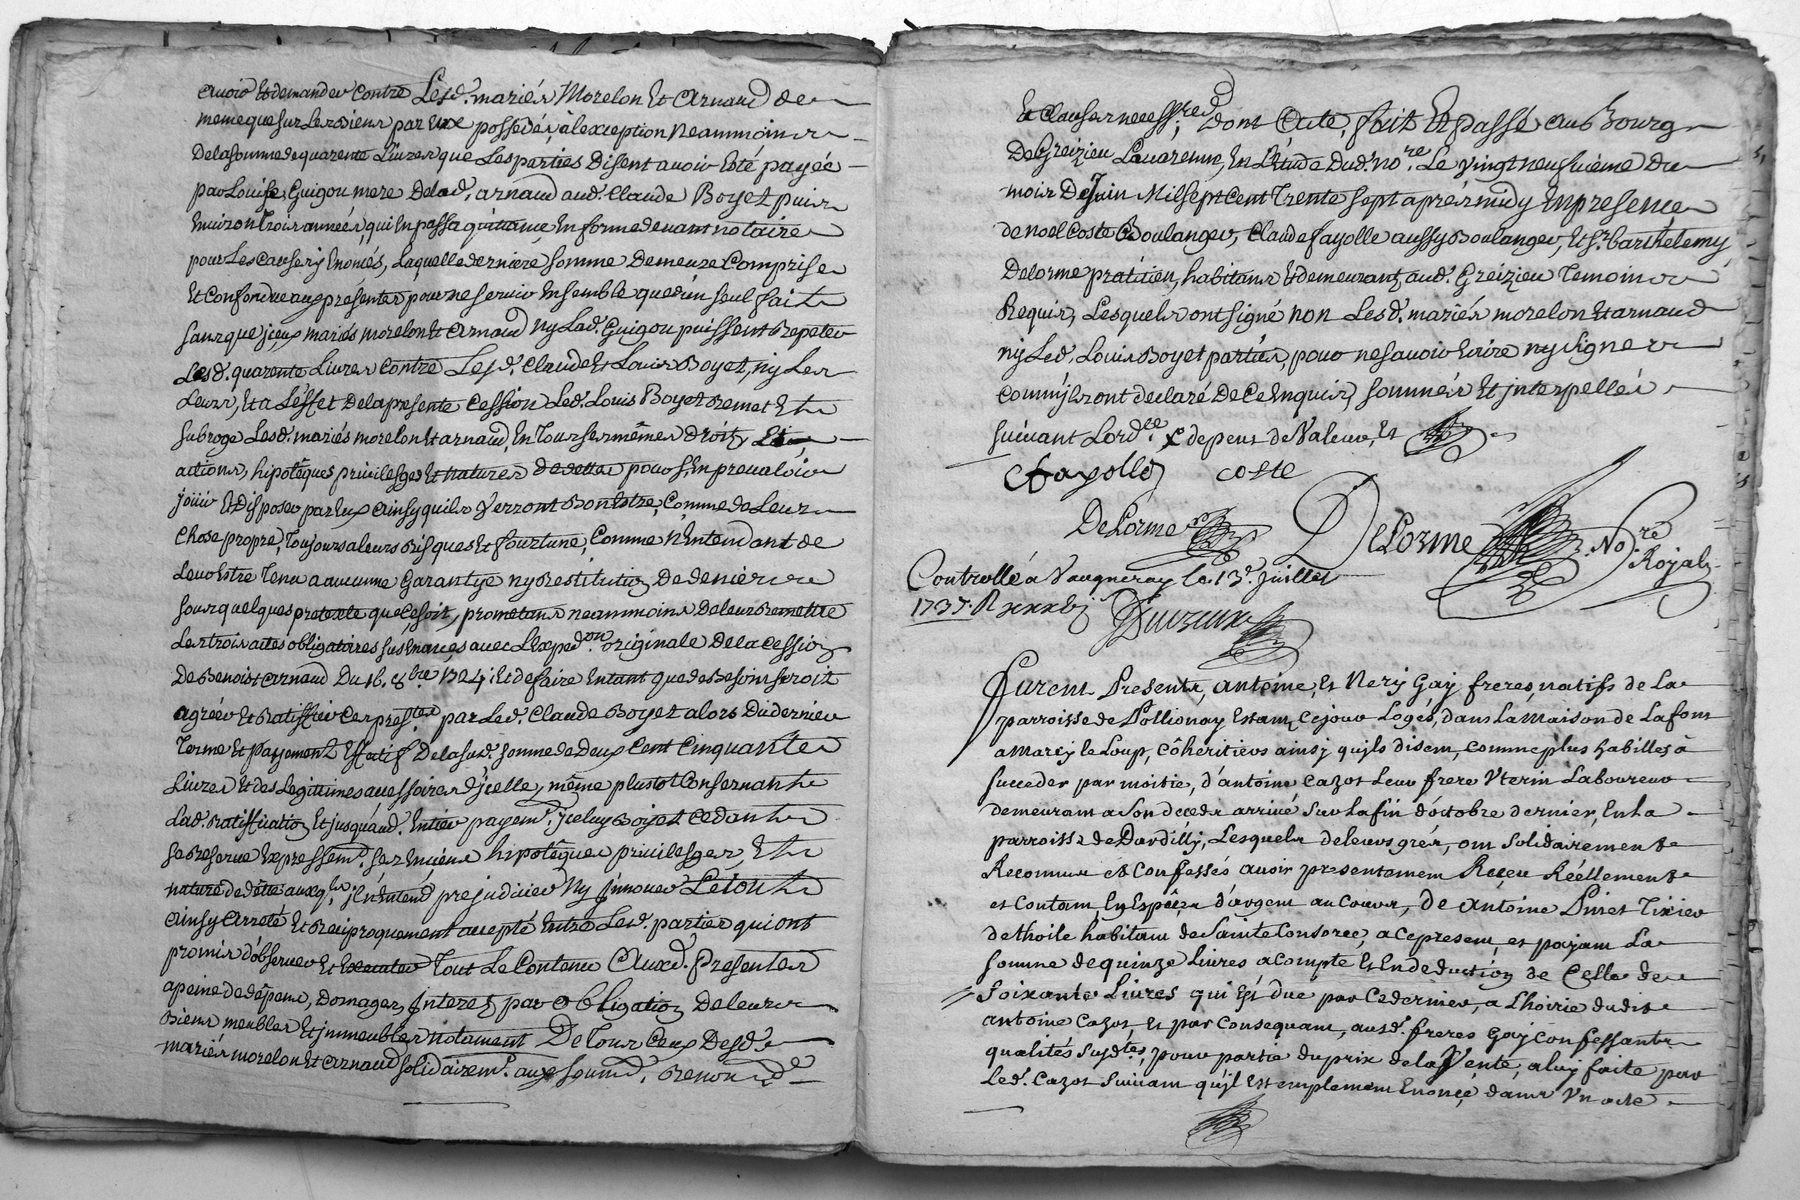 avoir et demander contre Lesd. mariés Morelon et Arnaud de
meme que sur Les biens par Eux possedés, à lexception neammoins
De la somme de quarente Livres que Les parties Disent avoir Eté payée
par Louise Guigou mere De lad. arnaud aud. Claude Boyet puis
Environ Trois années, qui En passa quittance En forme devant notaire
pour Les causes y Enoncés, Laquelle derniere somme Demeure Comprise
Et Confondue aux presentes pour ne servir Ensemble que d'un seul fait
sans que jceux mariés morelon Et Arnaud ny Lad. Guigou puissent Repeter
Lesd. quarente Livres contre Lesd. Claude Et Louis Boyet, ny Les
Leurs, Et a L'effet De la presente Cession Led. Louis Boyet Remet Et
subroge Lesd. mariés morelon Et arnaud, En Tous ses mêmes Droits, Et
actions, hipotèques privilesges Et nature de dette pour s'En prevaloir
joüir Et Disposer par Eux Ainsy quils verront Bon Estre, Comme de Leur
Chose propre, Toujours a leurs Risques Et fourtune, Comme N'Entendant de
Leur Estre Tenu a aucunne Garantye ny Restitution De deniers
sous quelques pretexte que ce soit, prometans neammoins De leur Remettre
Les trois actes obligatoires susEnoncés avec L'Exped.on originale De la cession
De Benoist Arnaud Du 16. 8bre 1724. Et de faire En tant que de Besoin seroit
agréer Et Ratiffier Ces pres.tes par Led. Claude Boyet alors Du dernier
Terme Et payement Effectif De la sud. somme de Deux Cent Cinquante
Livres Et des Legitimes accessoires D'jcelle, même plustot Consernant
Lad. Ratiffication Et jusqu'aud. Entier payem.t jceluy Boyet Cedant
se Reserve Expressem.t ses Enciens hipotèques privilesges, Et
nature de dette auxq.ls jl n'Entend prejudicier Ny Innover Le tout
Ainsy Arreté Et Reciproquement accepté Entre Lesd. parties qui ont
promis d'observer Et Executer Tout Le Contenu Auxd. Presentes
a peine de depens, Domages, Interez par obligation De leurs
Biens meubles Et jmmeubles notament De Tous Ceux Desd.
mariés morelon Et Arnaud solidairem.t aux soum. Renon.
Et Clauses necess.res Dont Acte, fait Et passé au Bourg
De Greizieu Lavarenne, En L'Etude Dud. no.re Le vingt neufvieme Du
mois De Juin Mil sept Cent Trente sept aprés midy En presence
de noel Coste Boulanger, Claude fayolle aussy Boulanger, Et S.r barthelemy
Delorme praticien, habitans Et demeurants aud. Greizieu Temoins
Requis, Lesquels ont signé non Lesd. mariés morelon Et arnaud
ny Led. Louis Boyet parties, pour ne savoir Ecrire ny signer
comm'jls ont declaré De Ce Enquis, sommés Et jnterpellés
suivant Lord.ce
Cfayolle coste
DeLorme DeLorme No.re Royal
Controllé a Vaugneray le 13.e Juillet
1737. R
Furent Presents, antoine, et Nery Gay freres, natifs de La
parroisse de Pollionay Estant Cejour Logés, dans La maison de Lafont
a Marcy le Loup, Côheritiers ainsi qu'jls disent, comme plus habilles à
succeder par moitie, d'antoine Cazot Leur frere Vterin Laboureur
demeurant a Son deceds arrivé Sur la fin d'octobre dernier, En la
parroisse de Dardilly, Lesquels de leurs gréz, ont Solidairement
Reconnu et Confessés avoir presentement Reçeu Réëllement
et Contant, En Espêces d'argent au Cours, de Antoine Tixier
de thoile habitant de Sainte Consorce, a Ce present, et payant La
Somme de quinze Livres a Compte Et En deduction de Celle de
Soixante Livres qui Est due par Ce dernier, a L'hoirie dudit
antoine Cazot, Et par Consequant, ausd. freres Gay Confessants
qualités Susd.tes, pour partie du prix de la Vente, a luy faite par
Led. Cazot Suivant qu'jl Est emplement Enoncé dans Vn acte